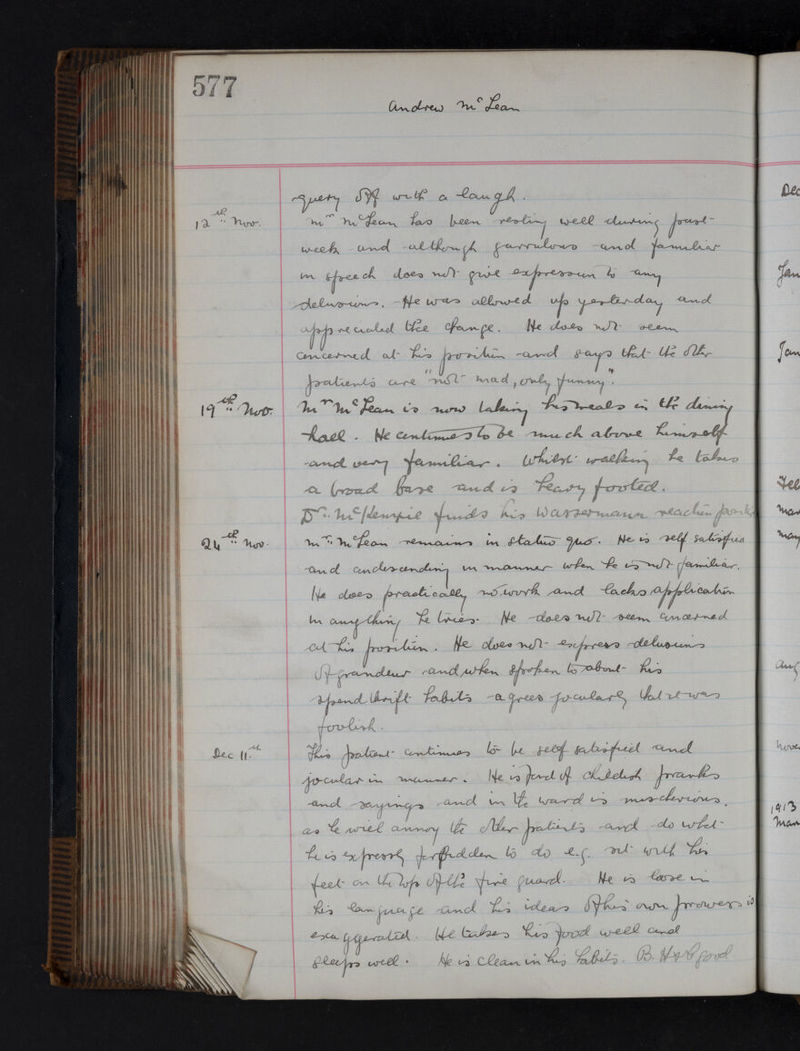 577
Andrew McLean
query off with a laugh.
12th Nov. Mr McLean has been resting well during past
week and although garrulous and familiar
in speech does not give expression to any
delusions. He was allowed up yesterday and
appreciated the change. He does not seem
concerned at his position and says that the other
patients are "not mad, only funny".
19th Nov. Mr McLean is now taking his meals in the dining
hall. He continues to be much above himself
and very familiar. Whilst walking he takes
a broad base and is heavy footed.
Dr. McKenzie finds his Wassermann reaction
24th Nov. Mr. McLean remains in statu quo. He is self satisfied
and condescending in manner when he is not familiar.
He does practically no work and lacks application
in anything he tries. He does not seem concerned
at his position. He does not express delusions
of grandeur and when spoken to about his
spendthrift habits agrees jocularly that it was
foolish.
Dec 11th This patient continues to be self satisfied and
jocular in manner. He is fond of childish pranks
and sayings and in the ward is mischevious,
as he will annoy the other patients and do what
he is expressly forbidden to do e.g. sit with his
feet on the top of the fire guard. He is loose in
his language and his ideas of his own prowess is
exaggerated. He takes his food well and
sleeps well. He is clean in his habits. B.
Dec
Jan
Jan
Feb
Mar
May
Aug
Nove
1913
Mar